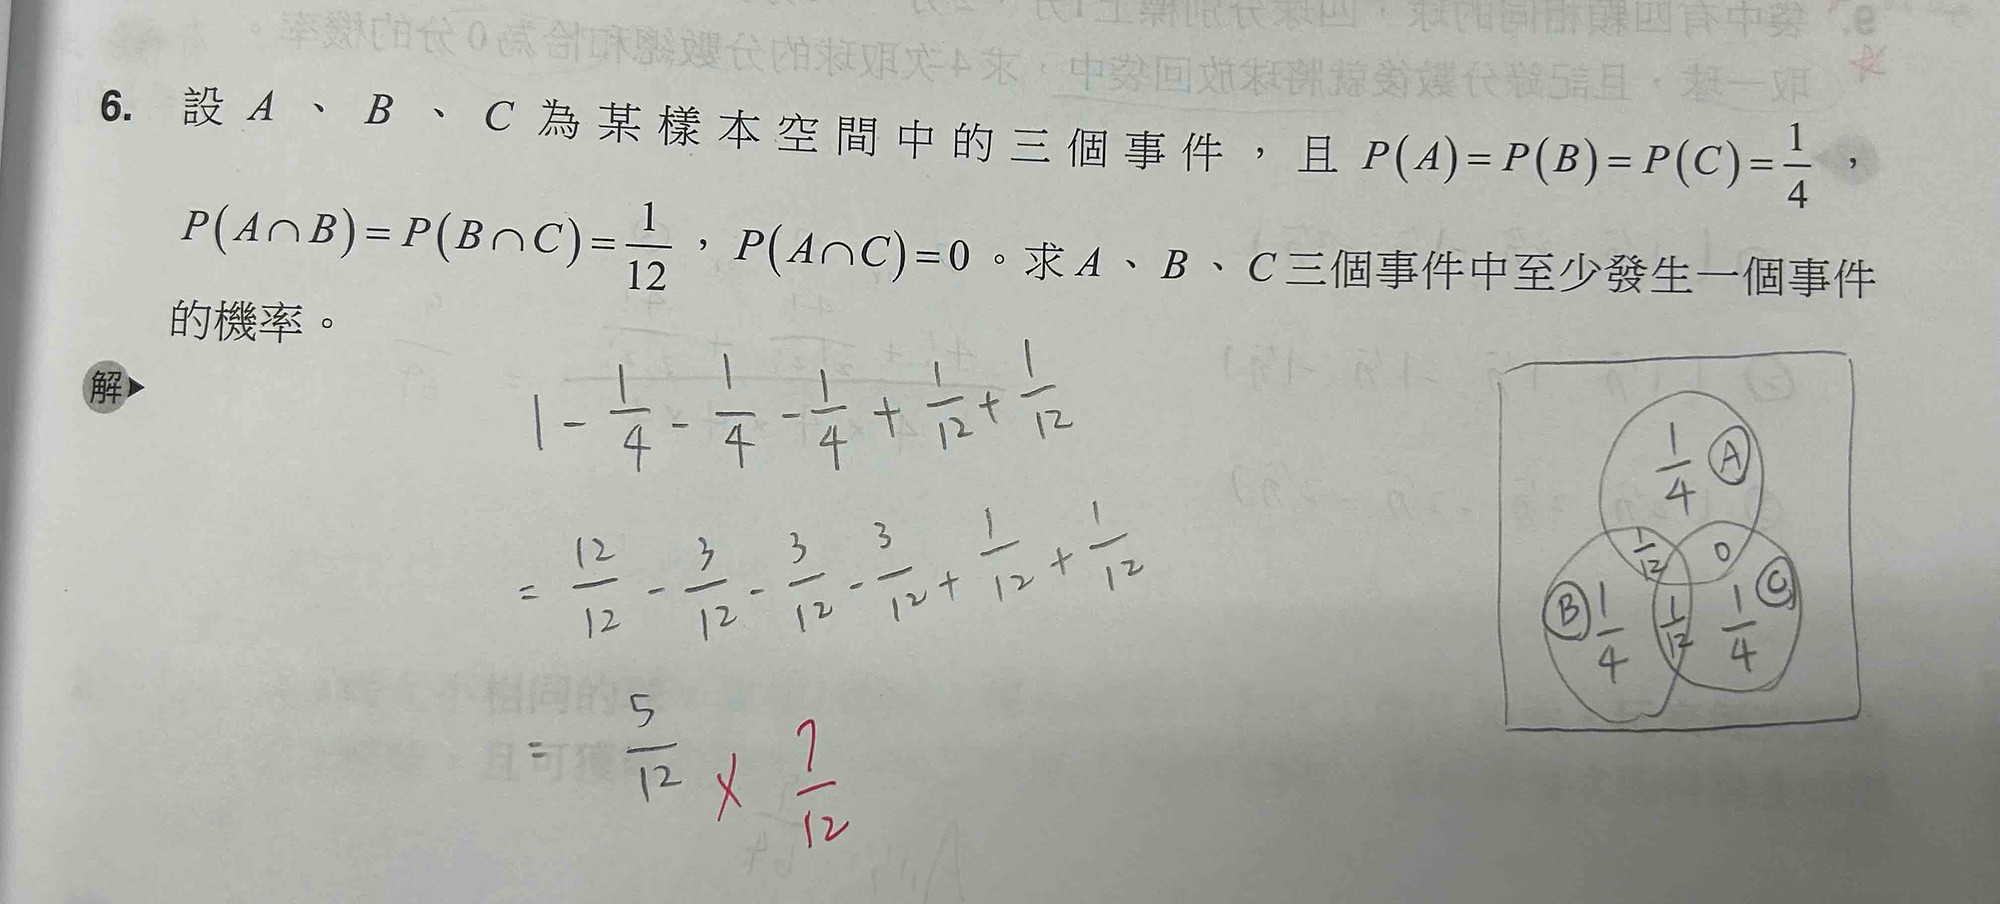 6. 設 A 、 B 、 C 為某樣本空間中的三個事件，且 P(A)=P(B)=P(C)=1/4，
P(A∩B)=P(B∩C)=1/12，P(A∩C)=0。求 A、B、C 三個事件中至少發生一個事件
的機率。
解
1 - 1/4 - 1/4 - 1/4 + 1/12 + 1/12
= 12/12 - 3/12 - 3/12 - 3/12 + 1/12 + 1/12
= 5/12 × 7/12
1/4 A
1/12 0
B 1/4 1/12 1/4 C